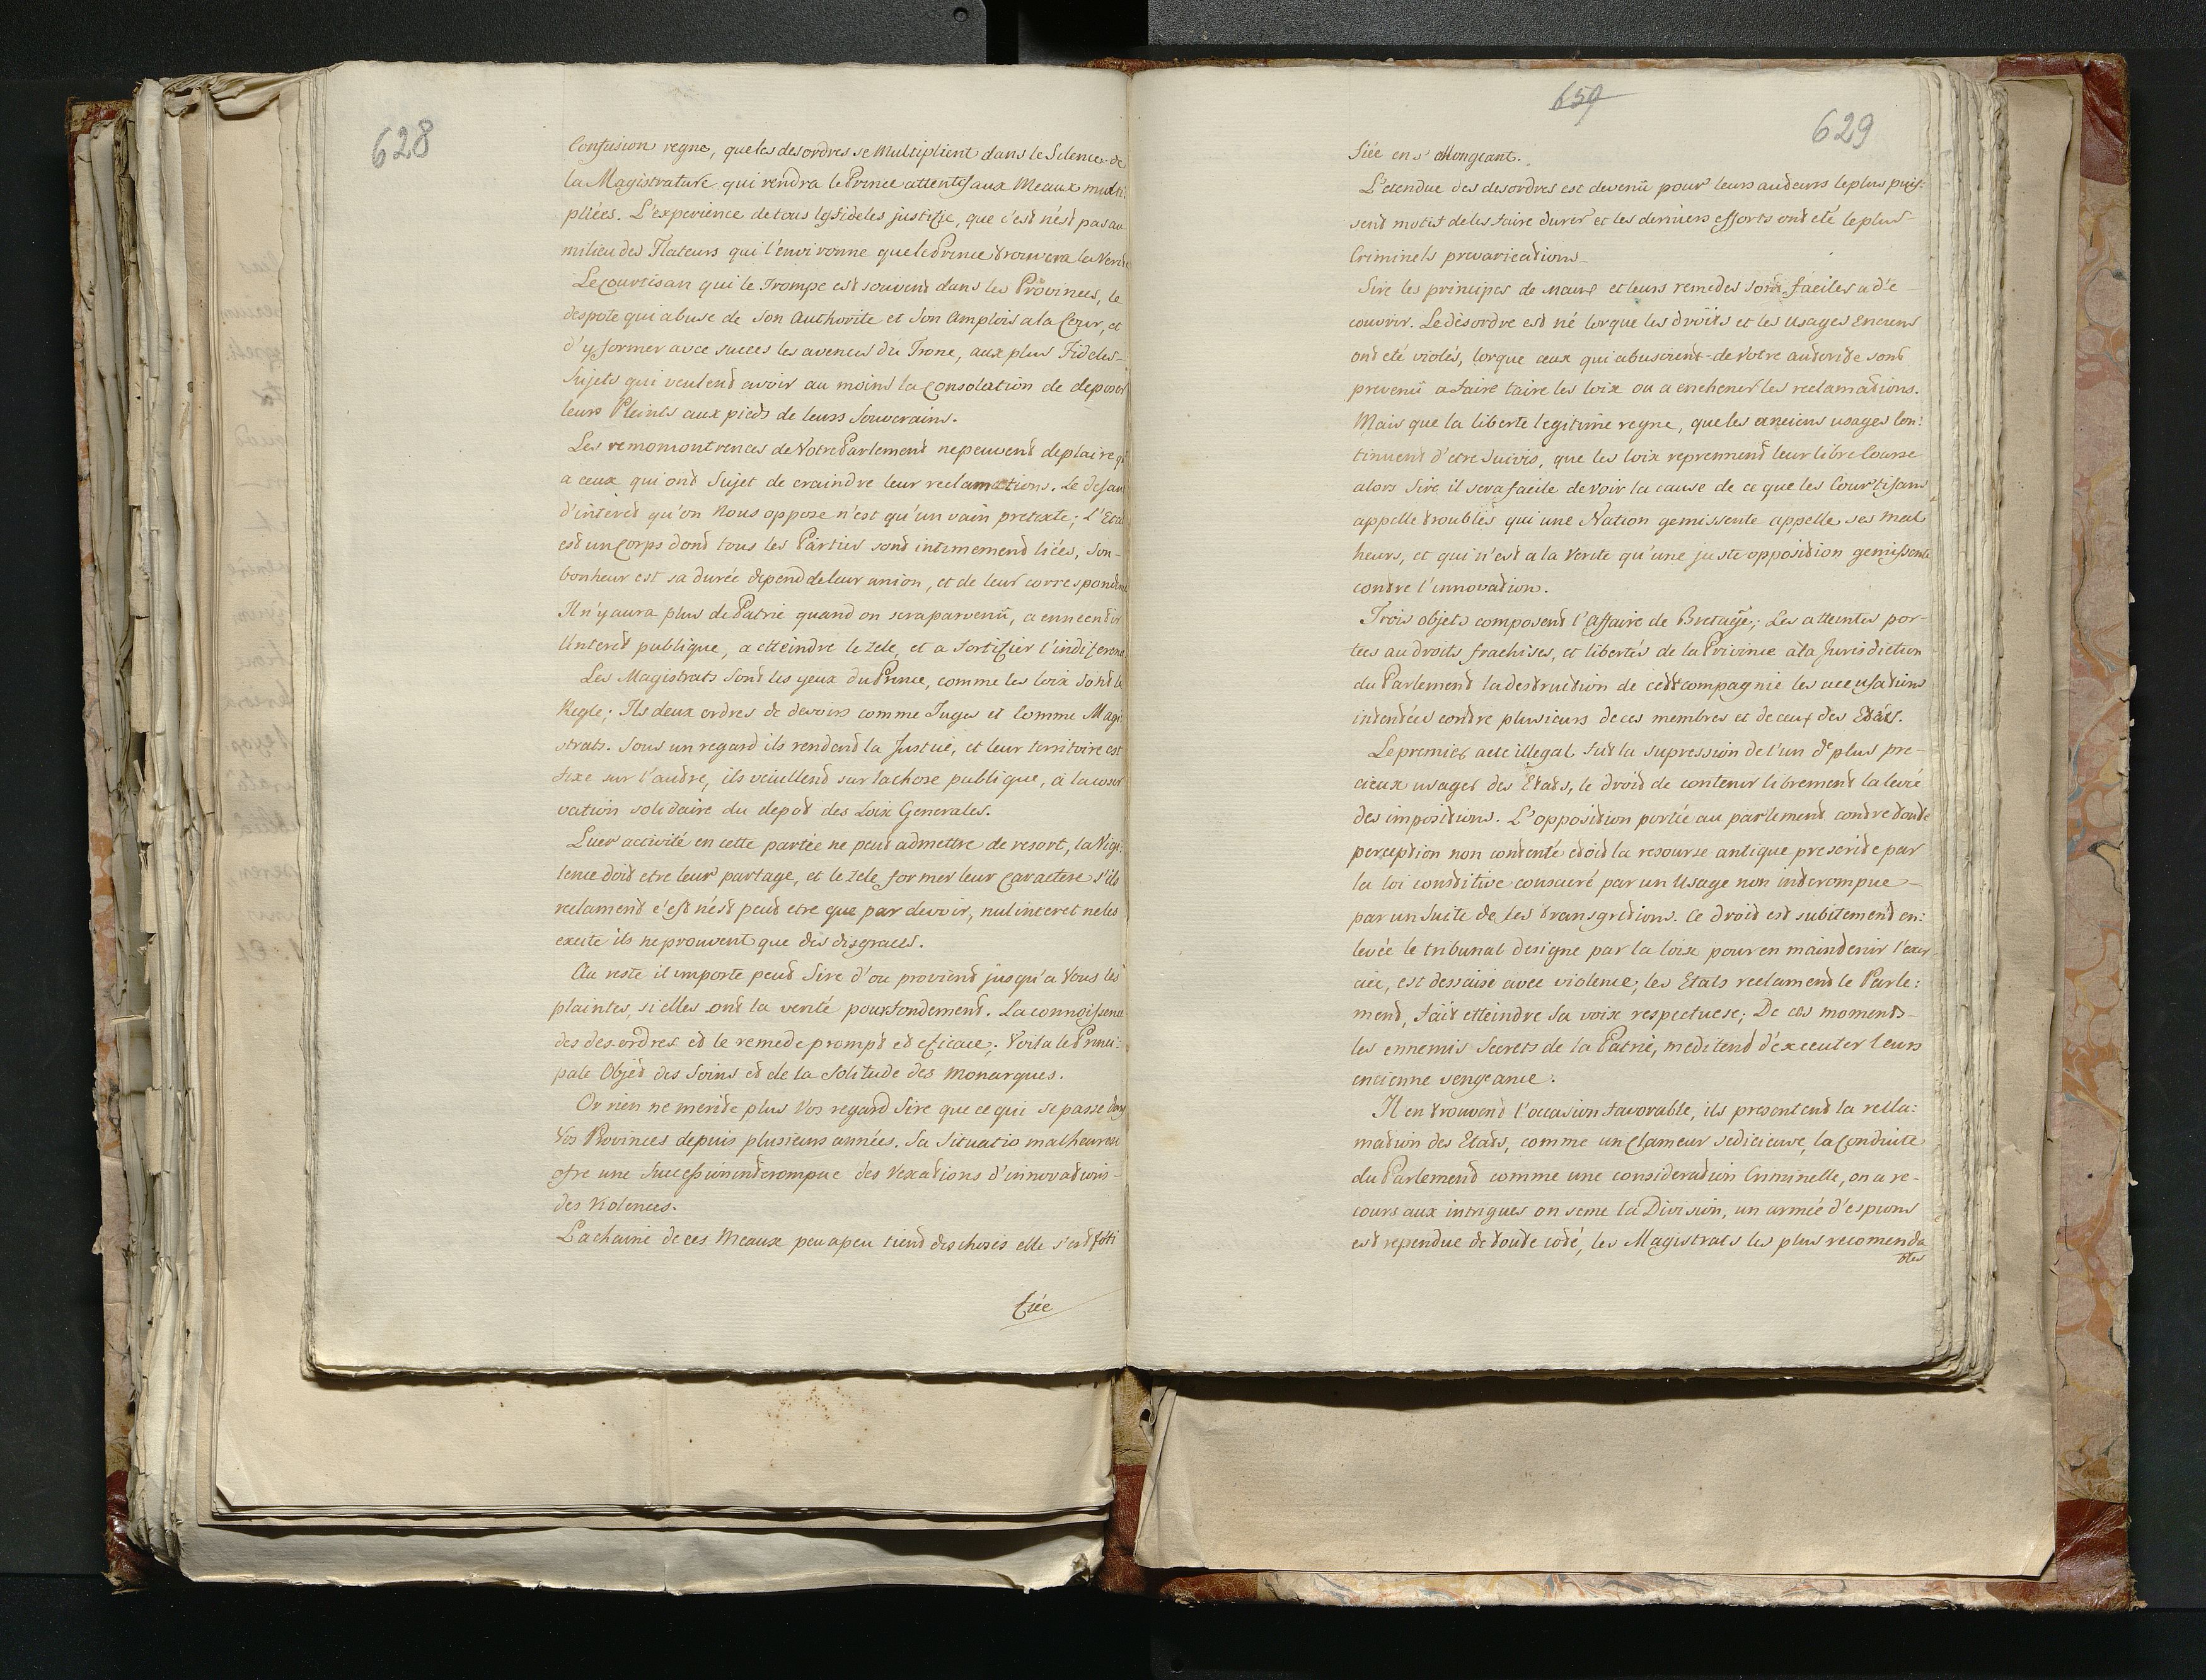 628
Confusion regne, que les desordres se Multiplient dans le Silence de
la Magistrature qui rendra le Prince attentif aux Meaux multi:
pliées. L'experience de tous les fideles justifie, que c'est n'est pas au
milieu des Flateurs qui l'environne que le Prince trouvera la Verité
Le Courtisan qui le Trompe est souvent dans les Provinces, le
despote qui abuse de Son Authorite et Son Amplois a la Cour, et
d'y former avec succes les avenues du Trone, aux plus Fideles-
Sujets qui veulent avoir au moins la Consolation de deposer
leurs Pleints aux pieds de leurs Souverains.
Les remomontrences de Votre Parlement ne peuvent deplaire q
a ceux qui ont Sujet de craindre leur reclamations. Le defau
d'interet qu'on Nous oppose n'est qu'un vain pretexte; L'Etat
est un Corps dont tous les Parties sont intimement liées, Son-
bonheur est sa durée depend de leur union, et de leur correspondence
Il n'y aura plus de Patrie quand on sera parvenü, a enneentir
l'interet publique, a etteindre le zele, et a fortifier l'indiference
Les Magistrats Sont les yeux du Prince, comme les loix sont la
Regle; Ils deux ordres de devoirs comme Juges et Comme Magi:
strats. Sous un regard ils rendent la Justice, et leur territoire est
fixe sur l'autre, ils veiullent sur la chose publique, à la conser
vation solidaire du depot des Loix Generales.
Luer activité en cette partée ne peut admettre de resort, la Vigi:
lence doit etre leur partage, et le zele former leur Caractere s'ils
reclament c'est n'est peut etre que par devoir, nul interet ne les
excite ils ne prouvent que des disgraces.
Au reste il importe peut Sire d'ou provient jusqu'a Vous les
plaintes, si elles ont la verité pour fondement. La connoissence
des desordres et le remede prompt et eficace; Voila le Princi:
pale Objet des Soins et de la Solitude des Monarques.
Or rien ne merite plus Vos regard Sire que ce qui se passe dans
Vos Provinces depuis plusieurs années. Sa Situatio malheureu
ofre une Succession interompue des Vexations d'innovations-
des Violences.
La chaine de ces Meaux peu a peu tient des choses elle s'est foti
fiée
659
629
fiée en s'allongeant.
L'etendue des desordres est devenü pour leurs auteurs le plus puis:
sent motif de les faire durer et les derniers efforts ont eté le plus
Criminels prevarications-
Sire les principes de Maux et leurs remedes sont faciles a dé-
couvrir. Le desordre est né lorque les droits et les Usages Enciens
ont eté violés, lorque ceux qui abusoient de Votre autorite sont
prevenü a faire taire les loix ou a enchener les reclamations.
Mais que la liberte legitime regne, que les anciens usages Con:
tinuent d'etre Suivis, que les loix reprennent leur libre Course
alors Sire il sera facile de voir la cause de ce que les Courtisans
appelle troubles qui une Nation gemissente appelle ses Mal
heurs, et qui n'est a la Verite qu'une juste opposition gemissente
contre l'innovation.
Trois objets composent l'affaire de Bretage; Les atteintes por-
tées au droits frachises, et libertés de la Privinie à la Jurisdiction
du Parlement la destruction de cett compagnie les accusations
intentées contre plusieurs de ces membres et de ceux des Etats.
Le premier acte illegal fut la supression de l'un de plus pre-
cieux usages des Etats, le droit de contenir librement la levée
des impositions. L'opposition portée au parlement contre toute
perception non contenté etoit la resourse antique prescrite par
la loi constitive consacré par un Usage non interompue-
par un Suite de ses transgretions. Ce droit est subitement en:
levée le tribunal designe par la loix pour en maintenir l'exer
cice, est dessaise avec violence, les Etats reclament le Parle:
ment, fait etteindre sa voix respectuese; De ces moments-
les ennemis Secrets de la Patrie, meditent d'executer leurs
encienne vengeance.
Il en trouvent l'occasion favorable, ils presentent la recla:
mation des Etats, comme un Clameur sedicieuse, la Conduite
du Parlement comme une consideration Criminelle, on a re-
cours aux intrigues on seme la Division, un armée d'espions
est rependue de toute coté, les Magistrats les plus recomenda
bles